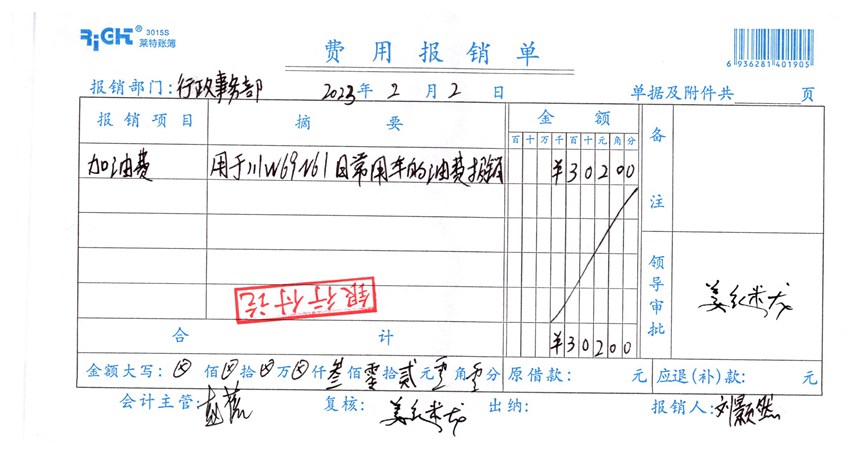 RiGHT® 3015S
莱特账簿
费用报销单
6 936281 401905
报销部门:行政事务部 2023年2月2日 单据及附件共 页
报销项目 摘要 金额 备注
百十万千百十元角分
加油费 用于川W69N61日常用车的油费报销 ¥30200
领导审批
银行付讫
合计 ¥30200
金额大写:⊗佰⊗拾⊗万⊗仟叁佰零拾贰元零角零分 原借款: 元 应退(补)款: 元
会计主管: 复核: 出纳: 报销人:刘颢然